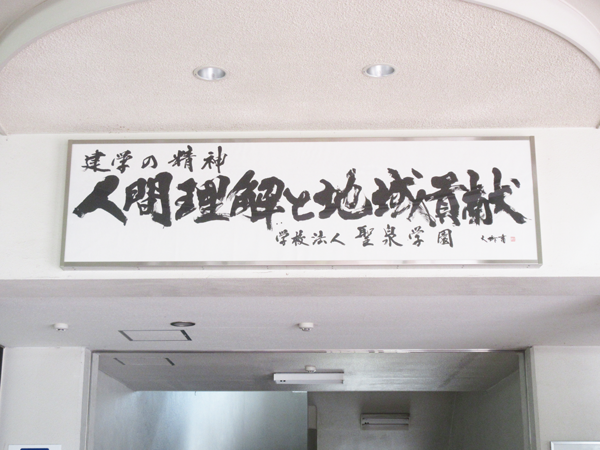 建学の精神
人間理解と地域貢献
学校法人 聖泉学園